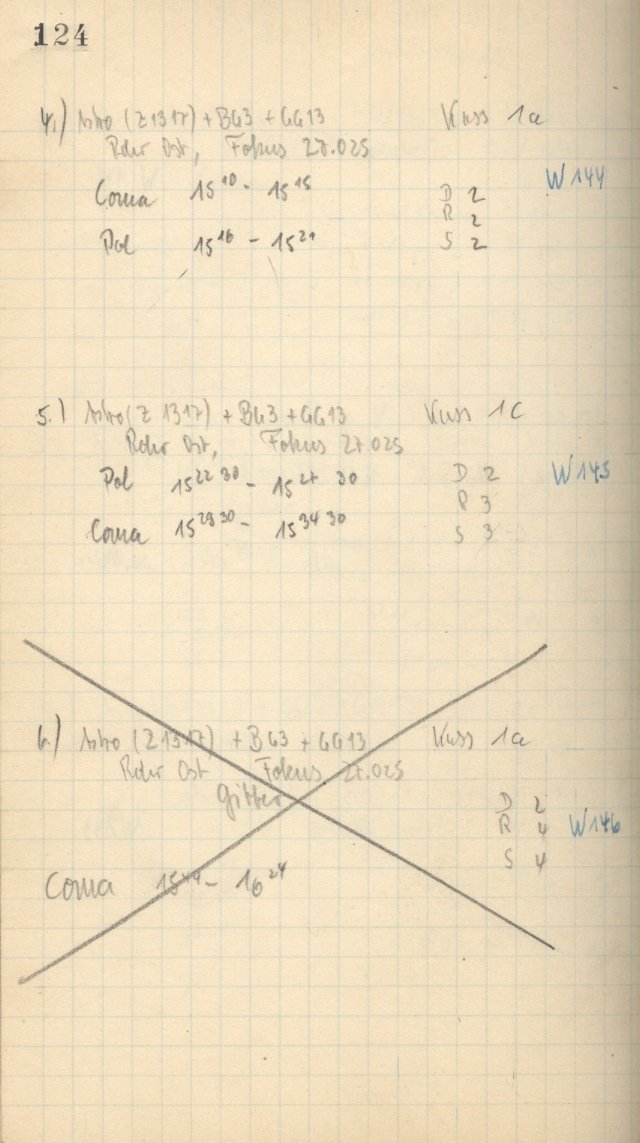 124
4.) Astro (Z1317) + BG3 + GG13 Kass 1a
Rohr Ost, Fokus 27.025
W144
Coma 15 10 - 15 15 D 2
R 2
Pol 15 16 - 15 21 S 2
5.) Astro (Z 1317) + BG3 + GG13 Kass 1c
Rohr Ost, Fokus 27.025
Pol 15 22 30 - 15 27 30 D 2 W145
R 3
Coma 15 29 30 - 15 34 30 S 3
6.) Astro (Z1317) + BG3 + GG13 Kass 1a
Rohr Ost Fokus 27.025
Gitter D 2
R 4 W146
S 4
Coma 15 - 16 24